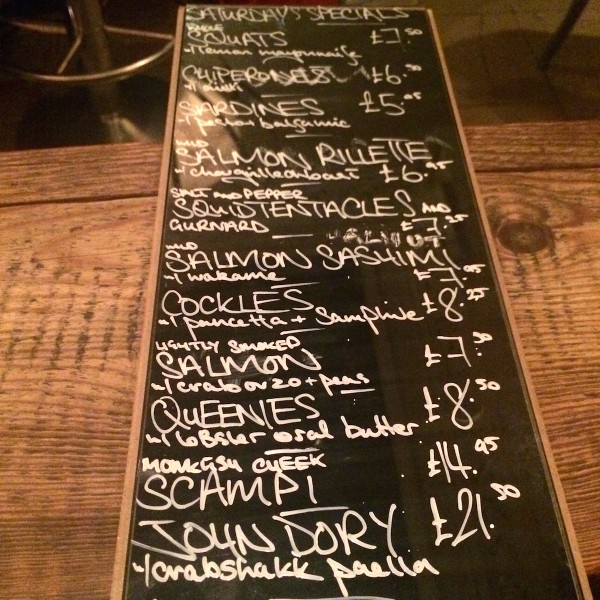 SATURDAYS SPECIALS
SQUATS £7.50
w/ lemon mayonnaise
CHIPERONES £6.50
w/ aioli
SARDINES £5.95
w/ pesto + balsamic
WILD
SALMON RILLETTE
w/ chargrilled toast £6.95
SALT AND PEPPER
SQUID TENTACLES AND
GURNARD £7.25
WILD
SALMON SASHIMI
w/ wakame £7.95
COCKLES £8.25
w/ pancetta + Samphire
LIGHTLY SMOKED
SALMON £7.50
w/ crab orzo + peas
QUEENIES £8.50
w/ lobster butter
MONKFISH CHEEK £14.95
SCAMPI
JOHN DORY £21.50
w/ crabshakk paella